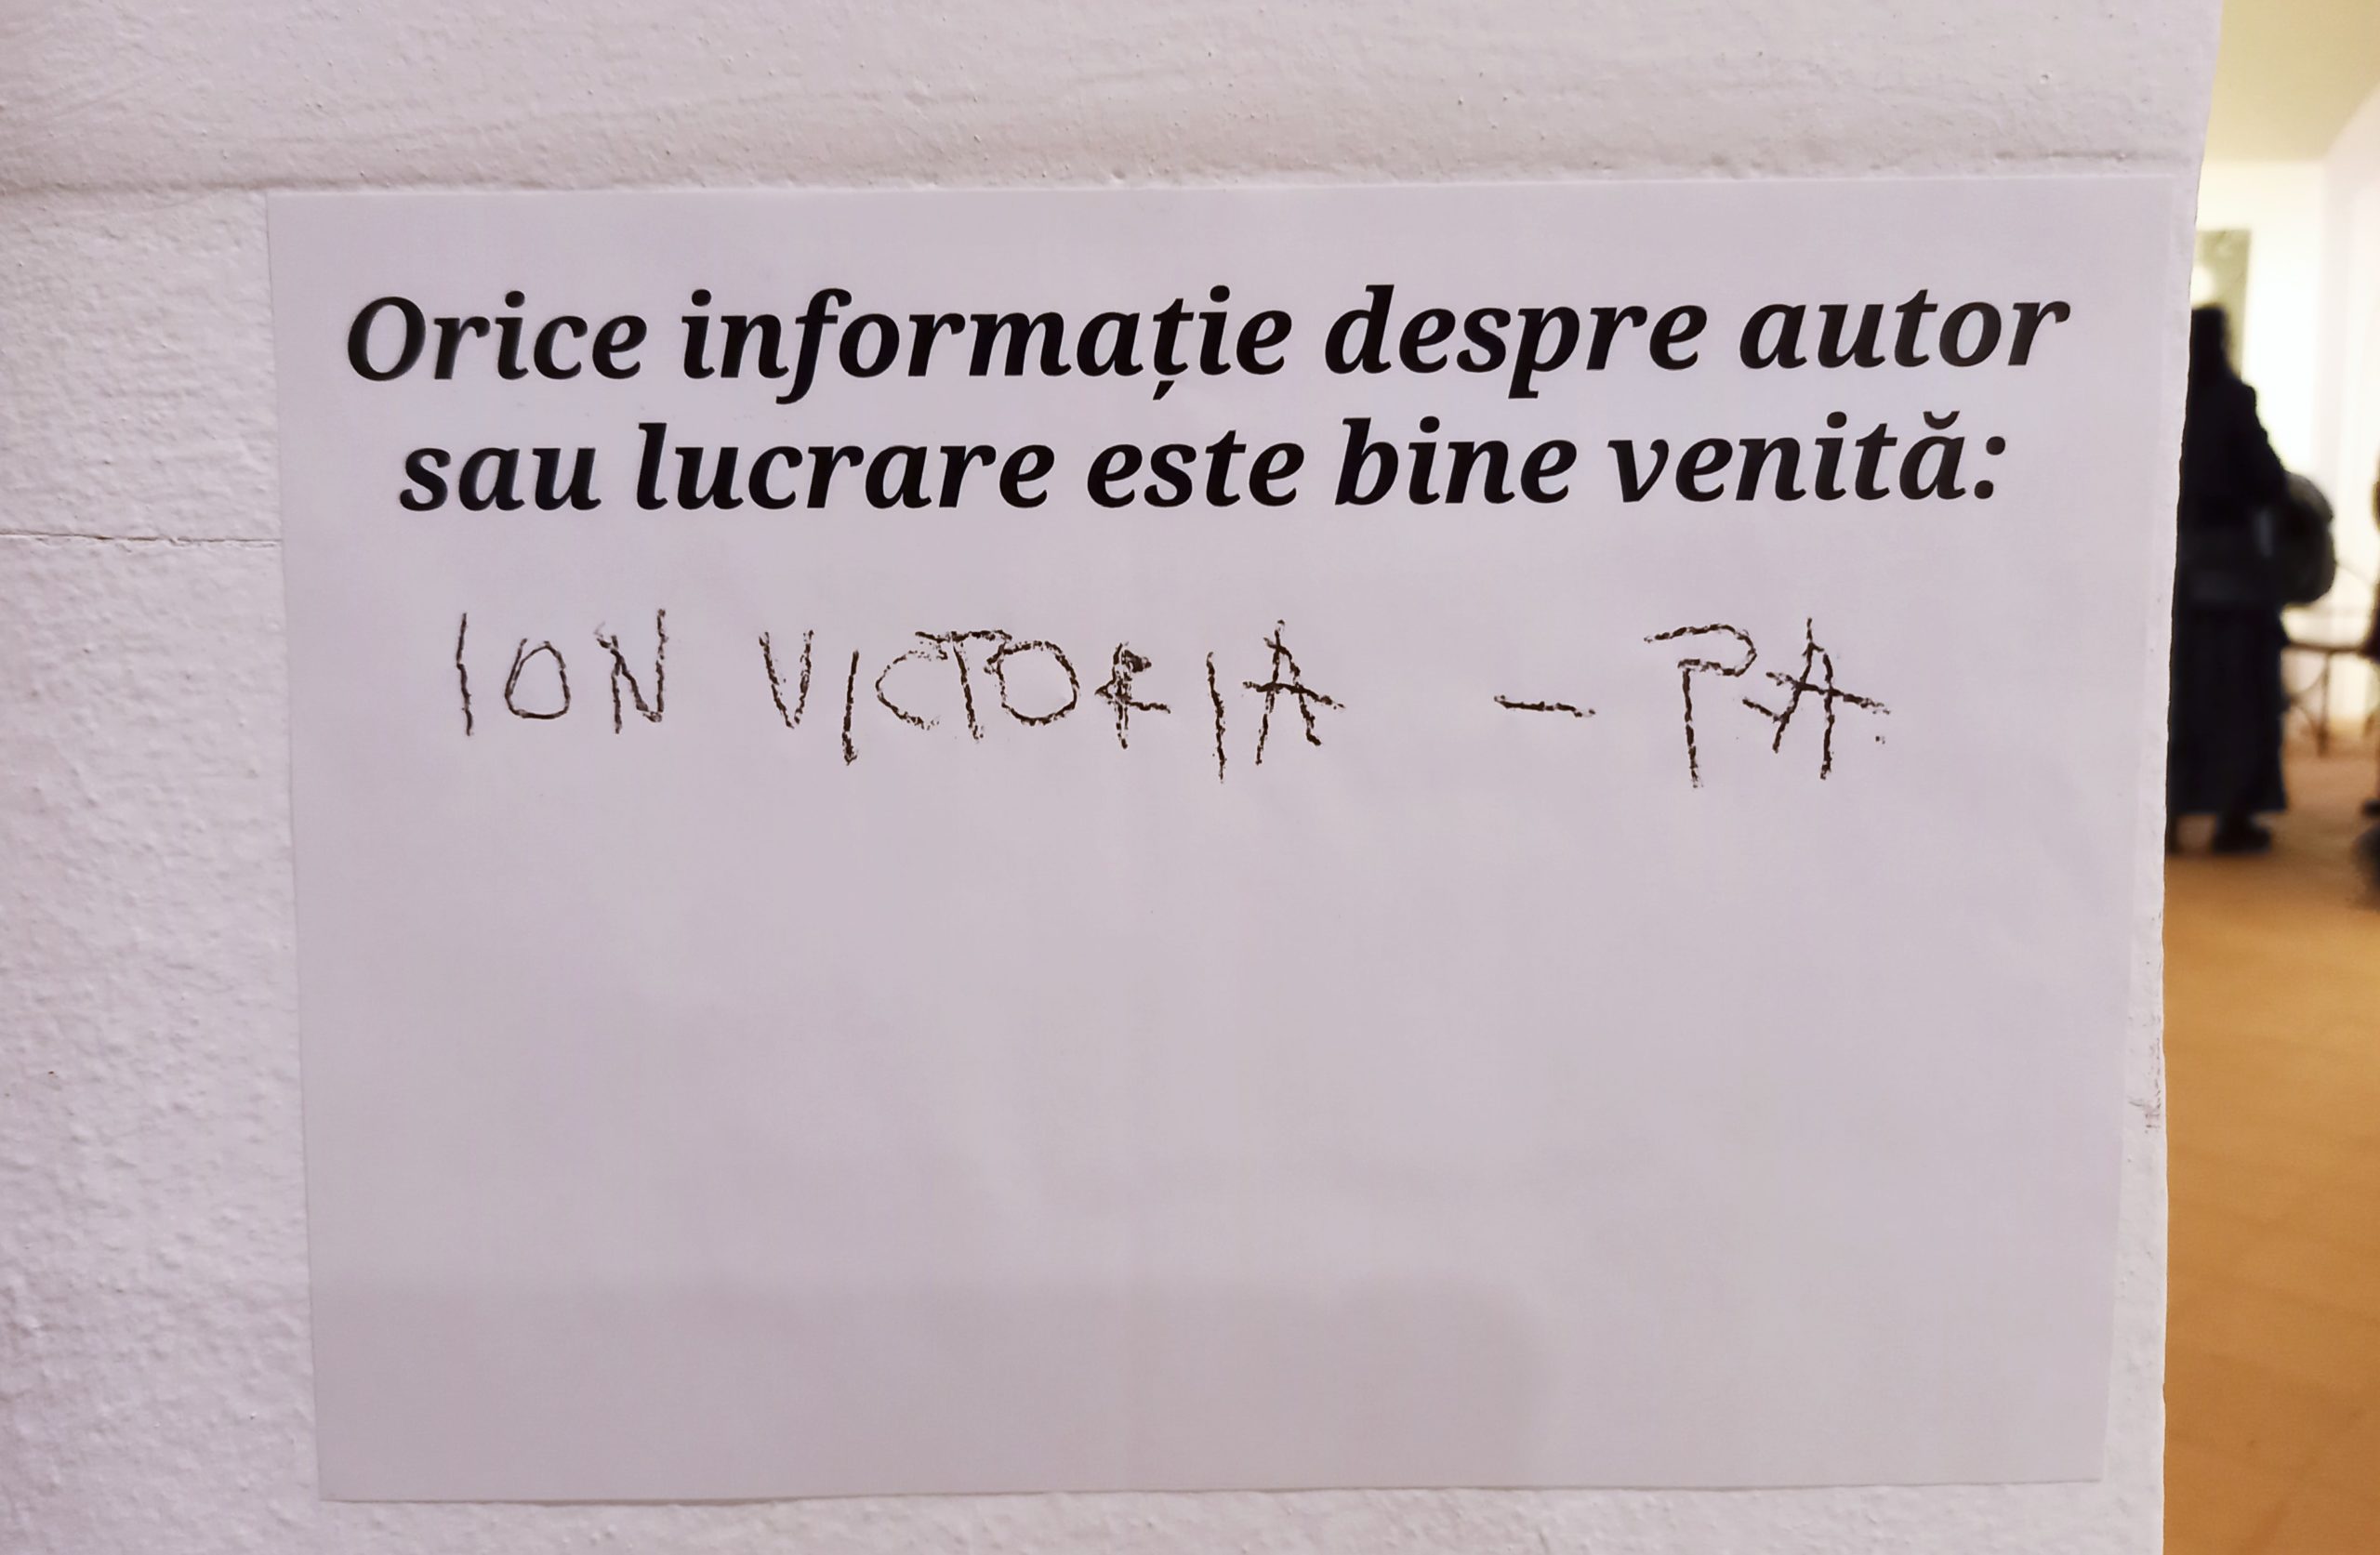 Orice informație despre autor
sau lucrare este bine venită:
ION VICTORIA - PA